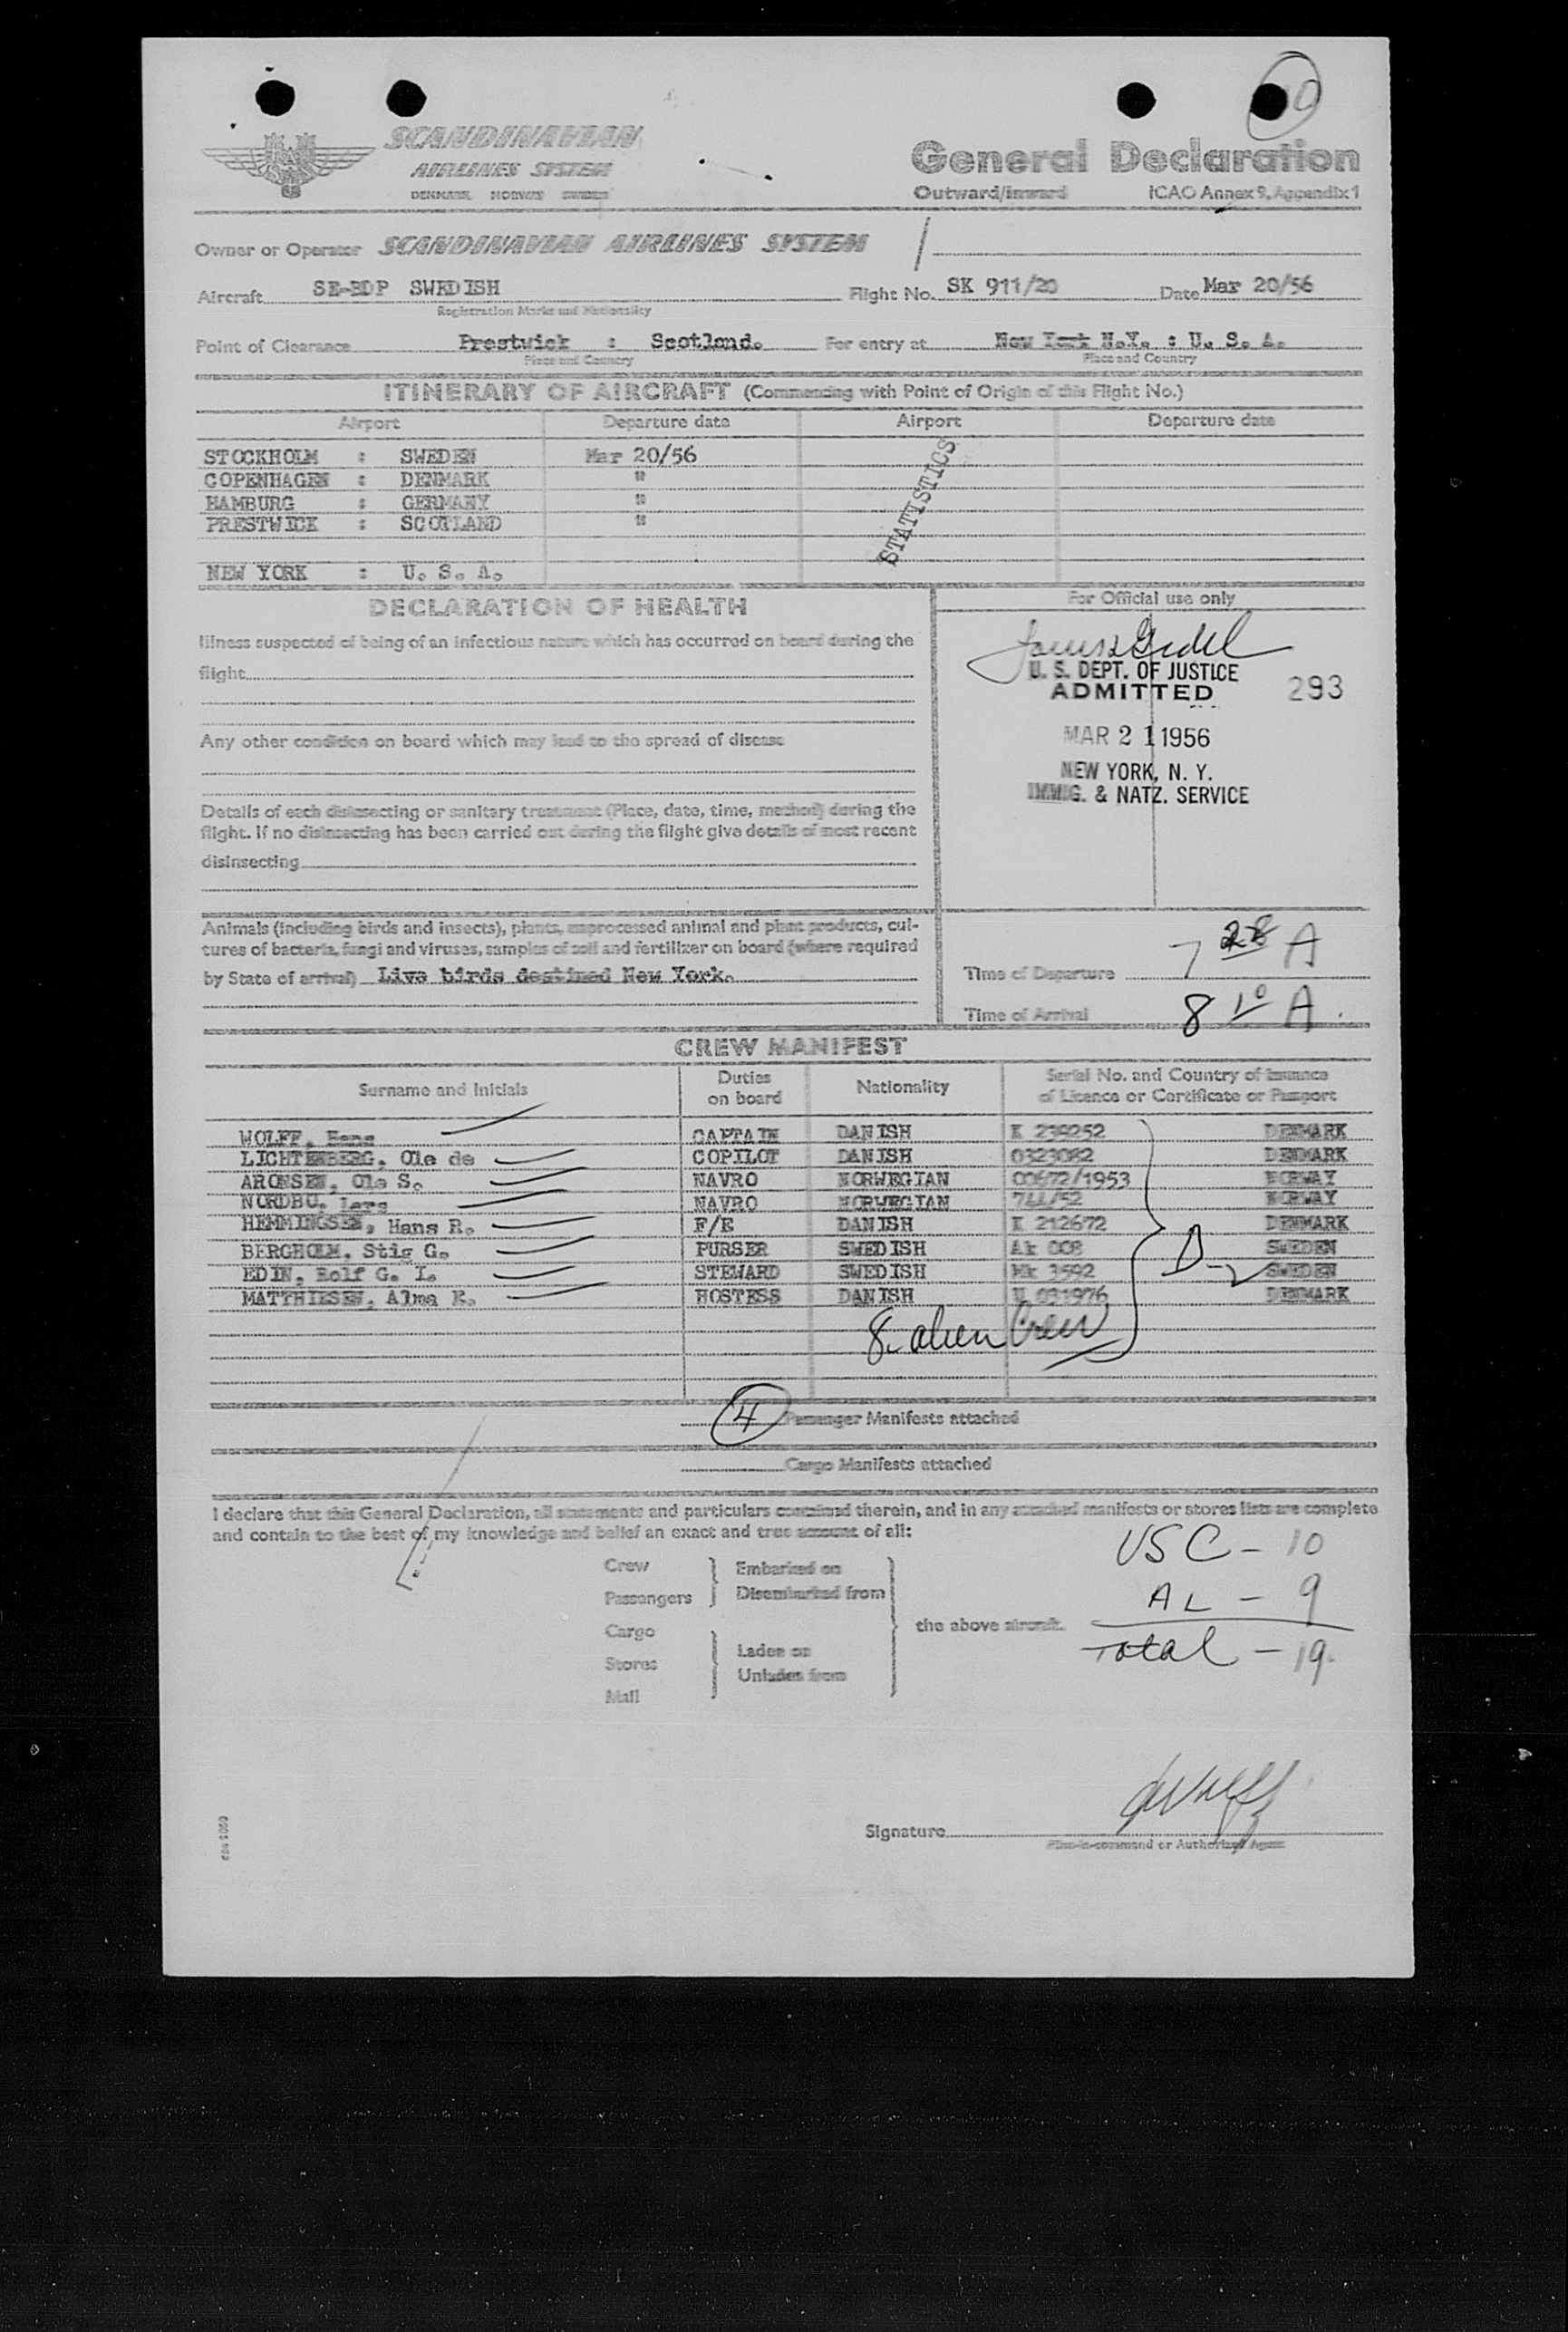 SCANDINAVIAN
AIRLINES SYSTEM
DENMARK NORWAY SWEDEN
General Declaration
Outward/Inward ICAO Annex 9, Appendix 1
Owner or Operator SCANDINAVIAN AIRLINES SYSTEM
Aircraft SE-BDP SWEDISH Flight No. SK 911/20 Date Mar 20/56
Registration Marks and Nationality
Point of Clearance Prestwick : Scotland. For entry at New York N.Y. : U. S. A.
Place and Country Place and Country
ITINERARY OF AIRCRAFT (Commencing with Point of Origin of this Flight No.)
Airport Departure date Airport Departure date
STOCKHOLM : SWEDEN Mar 20/56
COPENHAGEN : DENMARK "
HAMBURG : GERMANY "
PRESTWICK : SCOTLAND "
NEW YORK : U. S. A.
STATISTICS
DECLARATION OF HEALTH
Illness suspected of being of an infectious nature which has occurred on board during the
flight
Any other condition on board which may lead to the spread of disease
Details of each disinsecting or sanitary treatment (Place, date, time, method) during the
flight. If no disinsecting has been carried out during the flight give details of most recent
disinsecting
For Official use only
U. S. DEPT. OF JUSTICE
ADMITTED 293
MAR 21 1956
NEW YORK, N. Y.
IMMIG. & NATZ. SERVICE
Animals (including birds and insects), plants, unprocessed animal and plant products, cul-
tures of bacteria, fungi and viruses, samples of soil and fertilizer on board (where required
by State of arrival) Live birds destined New York.
Time of Departure 7 28 A
Time of Arrival 8 10 A.
CREW MANIFEST
Surname and Initials Duties on board Nationality Serial No. and Country of Issuance
of Licence or Certificate or Passport
WOLFF, Hans CAPTAIN DANISH K 239252 DENMARK
LICHTENBERG, Ole de COPILOT DANISH 0323082 DENMARK
ARONSEN, Ole S. NAVRO NORWEGIAN 00672/1953 NORWAY
NORDBU, Lars NAVRO NORWEGIAN 744/52 NORWAY
HEMMINGSEN, Hans R. F/E DANISH K 212672 DENMARK
BERGHOLM, Stig G. PURSER SWEDISH Ak 008 SWEDEN
EDIN, Rolf G. I. STEWARD SWEDISH Mk 3592 SWEDEN
MATTHIESEN, Alma K. HOSTESS DANISH U 031976 DENMARK
D-2
8. alien Crew
4 Passenger Manifests attached
Cargo Manifests attached
I declare that this General Declaration, all statements and particulars contained therein, and in any attached manifests or stores lists are complete
and contain to the best of my knowledge and belief an exact and true account of all:
Crew Embarked on
Passengers Disembarked from
Cargo the above aircraft.
Stores Laden on
Unladen from
Mail
USC - 10
AL - 9
Total - 19.
Signature
Pilot-in-command or Authorized Agent